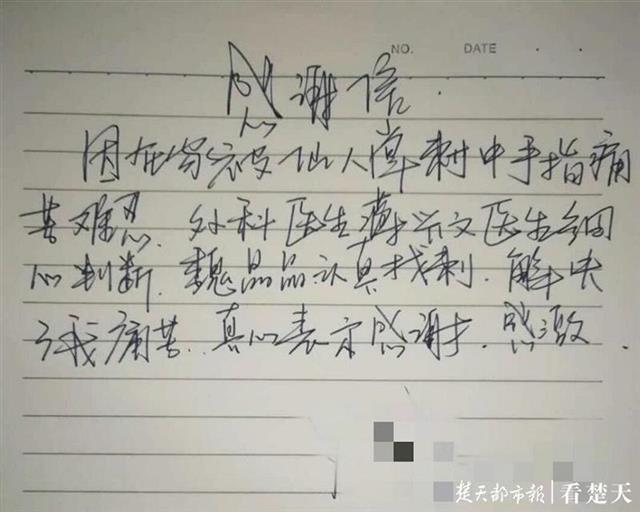 NO. DATE
感谢信
因在劳家被仙人掌刺中手指痛
苦难忍.外科医生 兴文医生细
心判断.魏晶晶认真找刺.解决
了我痛苦.真心表示感谢.感激.
楚天都市报 看楚天